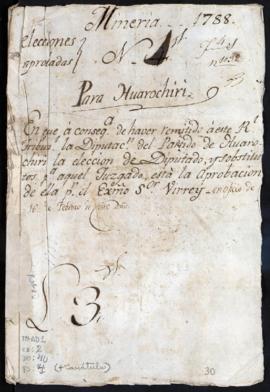 Mineria. 1788.
elecciones
aprovadas N. 4
Para Huarochiri.
En que a conseq.ª de haver remitido à este Rl
Tribunl la Diputac.n del Partido de Huaro-
chiri la eleccion de Diputado, y Substitu-
tos p.ª aquel Juzgado, está la Aprobacion
de ella pr. el Exmo Sor Virrey
de Febrero
3
(+ carátula)
30